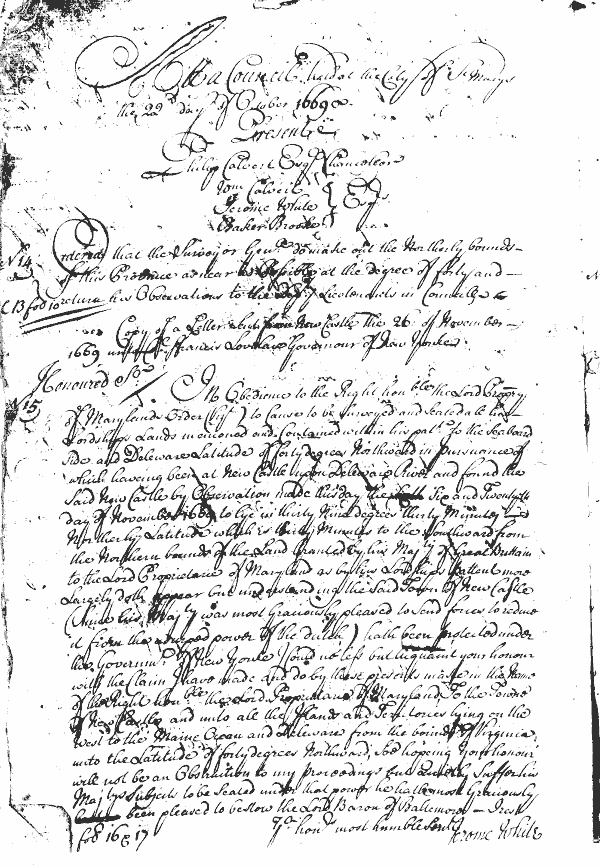 At a Council held at the City of St Marys
the 22d day of October 1669
Present
Philip Calvert Esqr Chancellour
Wm Calvert
Jerome White } Esqrs
Baker Brooke
No 14
Ordered that the Surveyor Genll do make out the Northerly bounds
of this Province as near as Possibly at the degree of forty and
return his Observations to the Lieutenants in Councell
Copy of a Letter sent from New Castle the 26 of November
1669 unto Francis Lovelace Governour of New Yorke
Honoured Sr
No 15
In Obedience to the Right honble the Lord Propry
of Marylands Order (Vizt) to Cause to be surveyed and seated all his
Lordshipps Lands mentioned and Contained within his patt To the Seaboard
side and Deleware Latitude of forty degrees Northward in pursuance of
which haveing been at New Castle upon Deleware River and found the
said New Castle by Observation made this day the Six and Twentyth
day of November 1669 to lye in thirty Nine degrees thirty Minutes
Northerly Latitude which is thirty Minutes to the Southward from
the Northern bounds of the Land Granted by his Maty of Great Brittain
to the Lord Proprietarie of Maryland as by his Lordships Pattent more
Largely doth appear but understanding the said Town of New Castle
(since his Maty was most Graciously pleased to send forces to reduce
it from the power of the dutch) hath been protected under
the Governmt of New Yorke I could no less but acquaint your honour
with the Claim I have made and do by these presents make in the Name
of the Right honble the Lord Proprietarie of Maryland To the Towne
of New Castle and unto all the Islands and Territories lying on the
west to the Maine Ocean and Deleware from the bounds of Virginia
unto the Latitude of forty degrees Northward, Soe hoping your honour
will not be an Obstruction to my Proceedings but Quietly Suffer his
Matys Subjects to be Seated under that power he hath most Graciously
been pleased to bestow the Lord Baron of Baltemore I rest
yr honrs most humble Servt
Jerome White
fo: 16 & 17